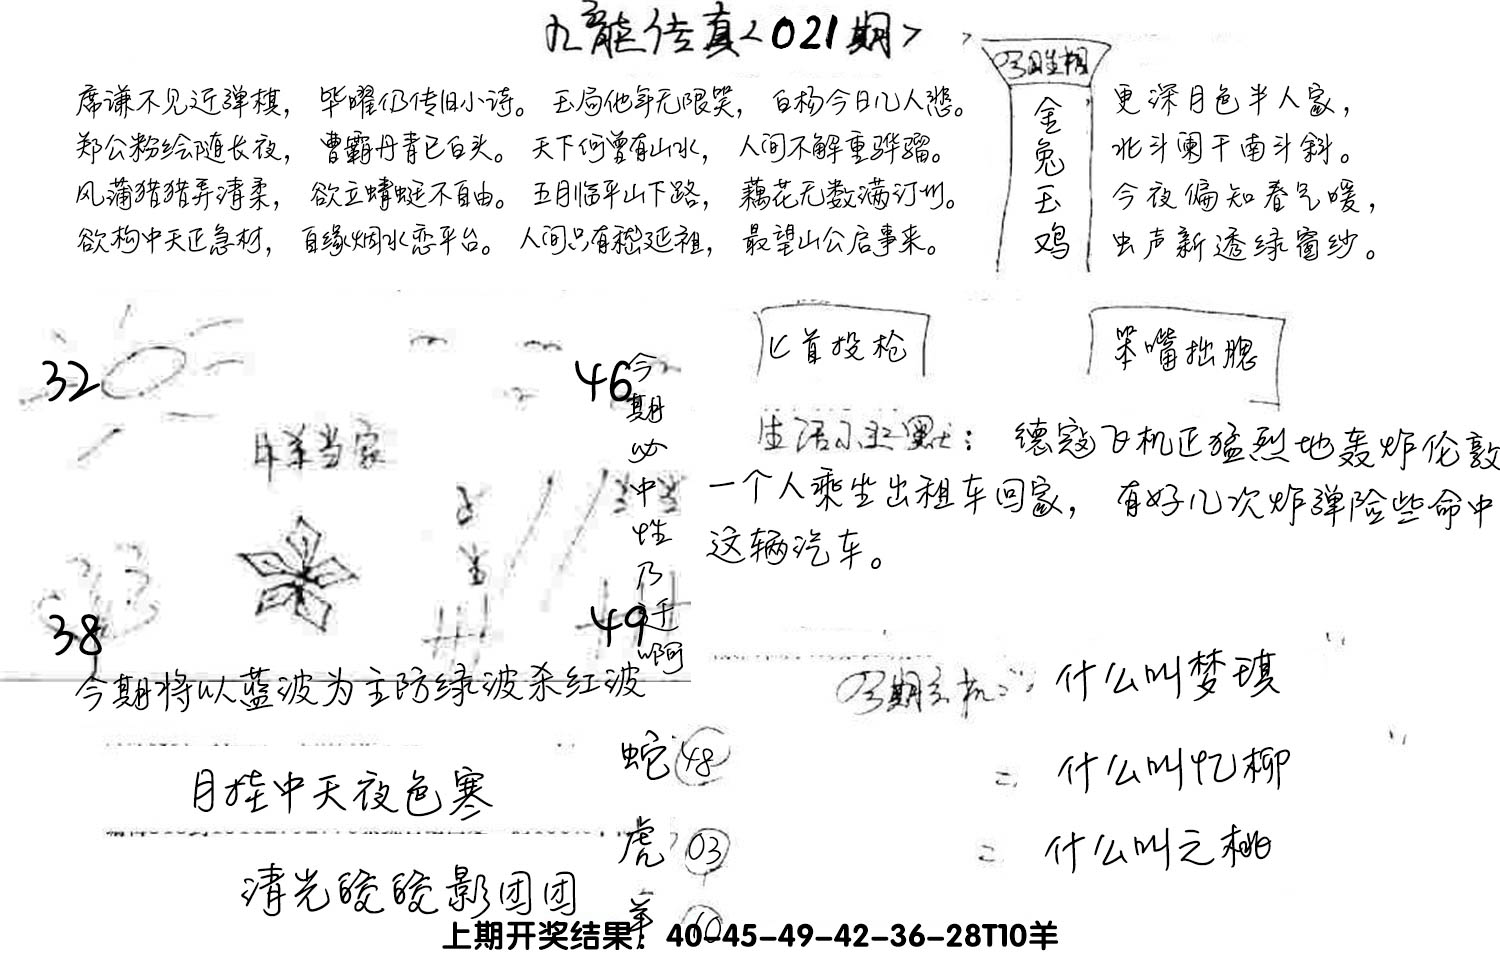 九龙传真<021期>
席谦不见近弹棋， 毕曜仍传旧小诗。 玉局他年无限笑， 白杨今日几人悲。
郑公粉绘随长夜， 曹霸丹青已白头。 天下何曾有山水， 人间不解重骅骝。
风蒲猎猎弄清柔， 欲立蜻蜓不自由。 五月临平山下路， 藕花无数满汀州。
欲构中天正急材， 自缘烟水恋平台。 人间只有嵇延祖， 最望山公启事来。
金兔玉鸡
更深月色半人家，
北斗阑干南斗斜。
今夜偏知春气暖，
虫声新透绿窗纱。
匕首投枪
笨嘴拙腮
32
46
今期必中性乃迁啊
38
49
今期将以蓝波为主防绿波杀红波
生活幽默： 德寇飞机正猛烈地轰炸伦敦
一个人乘坐出租车回家， 有好几次炸弹险些命中
这辆汽车。
今期玄机: 什么叫梦琪
= 什么叫忆柳
= 什么叫之桃
月挂中天夜色寒
清光皎皎影团团
蛇 48
虎 03
羊 10
上期开奖结果：40-45-49-42-36-28T10羊